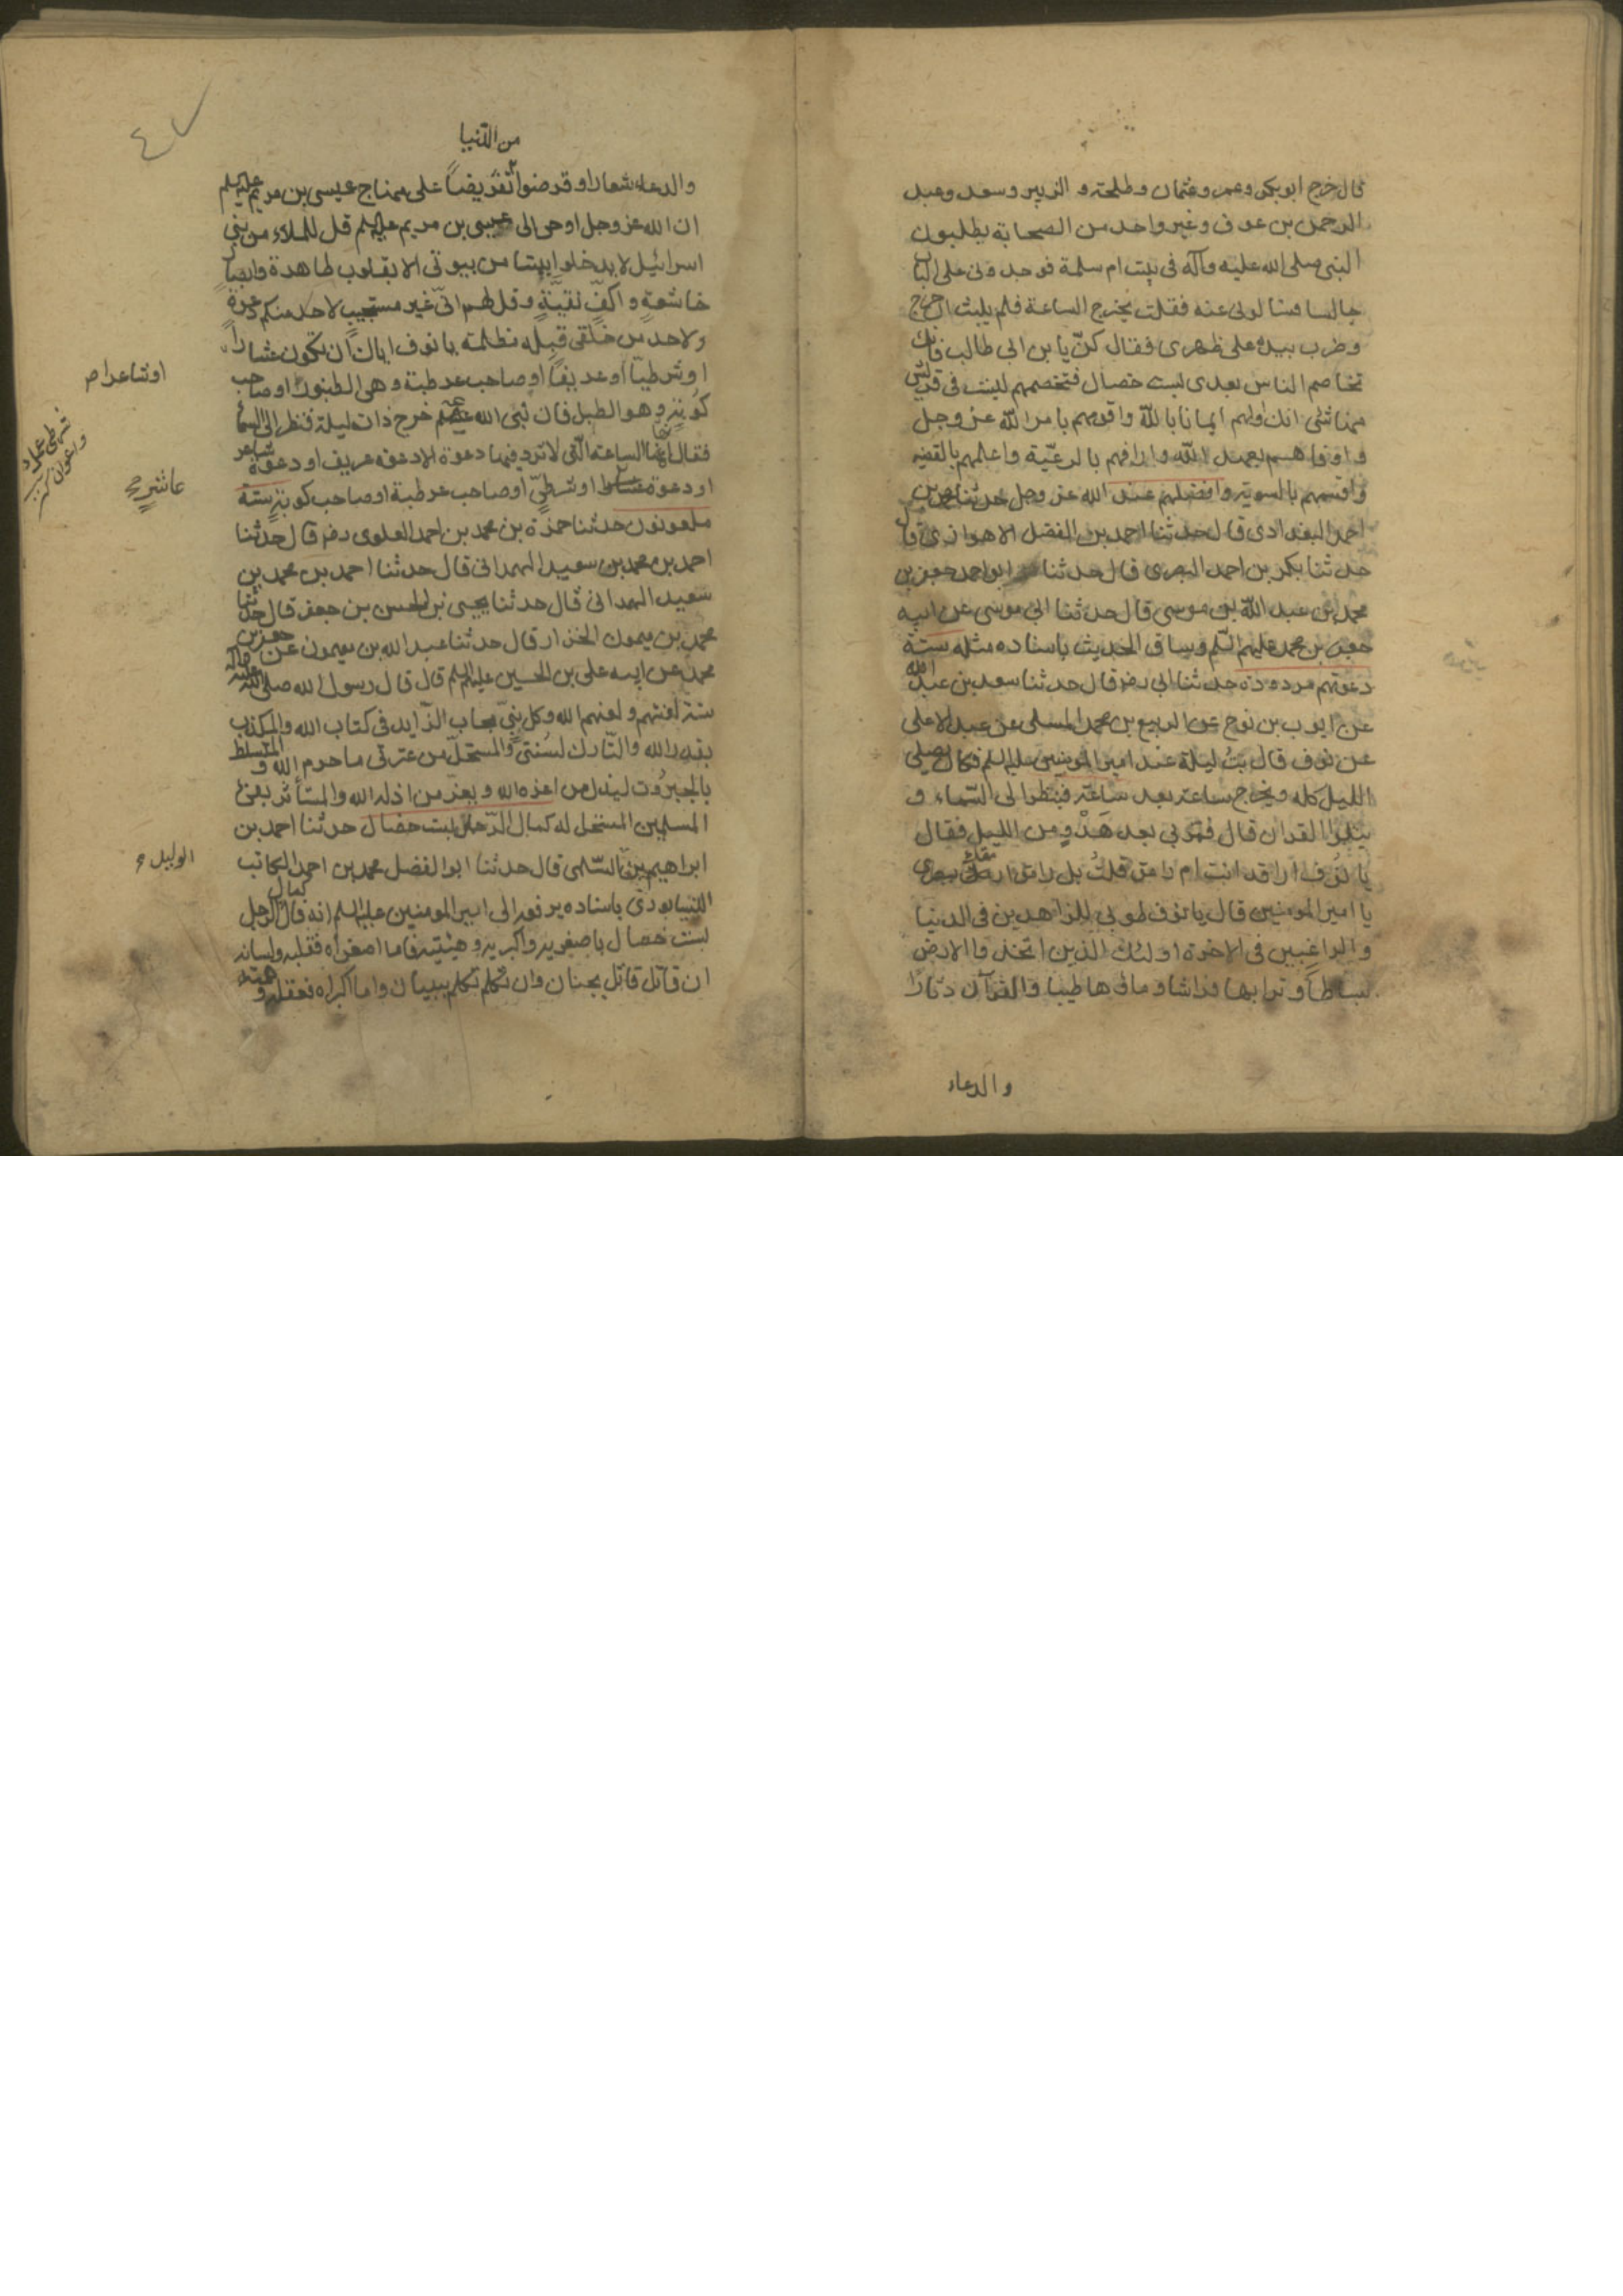 قال خرج ابو بكر وعمر وعثمان وطلحة و الزبير وسعد وعبد
الرحمن بن عوف وغير واحد من الصحابة يطلبون
النبى صلى الله عليه وآله فى بيت ام سلمة فوجدونى على الباب
جالسا فسالونى عنه فقلت يخرج الساعة فلم يلبث ان خرج
وضرب بيده على ظهرى فقال كن يا بن ابى طالب فانك
تخاصم الناس بعدى بست خصال فتخصمهم ليست فى قريش
منها شئ انك اولهم ايمانا بالله واقومهم بامر الله عز وجل
و اوفاهم بعهد الله و ارافهم بالرعية واعلمهم بالقضية
واقسمهم بالسوية وافضلهم عند الله عز وجل حدثنا
احمد البغدادى قال حدثنا احمد بن الفضل الاهوازى قال
حدثنا بكر بن احمد البصرى قال حدثنا ابو احمد جعفر بن
محمد بن عبد الله بن موسى قال حدثنا ابى موسى عن ابيه
جعفر بن محمد عليهم السلم وساق الحديث باسناده مثله ستة
دعوتهم مردودة حدثنا ابى رضر قال حدثنا سعد بن عبد الله
عن ايوب بن نوح عن الربيع بن محمد المسلى عن عبد الاعلى
عن نوف قال بت ليلة عند امير المومنين عليه السلم فكان يصلى
الليل كله ويخرج ساعة بعد ساعة فينظر الى السماء و
يتلوا القران قال فمر بى بعد هدو من الليل فقال
يا نوف اراقد انت ام رامق قلت بل رامق ارمقك ببصرى
يا امير المومنين قال يا نوف طوبى للزاهدين فى الدنيا
و الراغبين فى الاخرة اولئك الذين اتخذوا الارض
بساطا و ترابها فراشا و ماءها طيبا والقرآن دثارا
والدعاء
من الدنيا
والدعاء شعارا و قرضوا تقريضا على منهاج عيسى بن مريم عليه السلم
ان الله عز وجل اوحى الى عيسى بن مريم عليه السلم قل للملاء من بنى
اسرائيل لا يدخلوا بيتا من بيوتى الا بقلوب طاهرة وابصار
خاشعة و اكف نقية و قل لهم انى غير مستجيب لاحد منكم دعوة
ولاحد من خلقى قبله مظلمة يا نوف اياك ان تكون عشارا
او شرطيا او عريفا او صاحب عرطبة وهى الطنبور او صاحب
كوبة وهو الطبل فان نبى الله خرج ذات ليلة فنظر الى السماء
فقال انها الساعة التى لا ترد فيها دعوة الا دعوة عريف او دعوة شاعر
او دعوة او شرطى او صاحب عرطبة او صاحب كوبة ستة
ملعونون حدثنا حمزة بن محمد بن احمد العلوى رضر قال حدثنا
احمد بن محمد بن سعيد الهمدانى قال حدثنا احمد بن محمد بن
سعيد الهمدانى قال حدثنا يحيى بن الحسن بن جعفر قال حدثنا
محمد بن ميمون الخزار قال حدثنا عبد الله بن ميمون عن جعفر بن
محمد عن ابيه على بن الحسين عليهم السلم قال قال رسول الله صلى الله عليه وآله
ستة لعنتهم و لعنهم الله وكل نبى مجاب الزايد فى كتاب الله والمكذب
بقدر الله والتارك لسنتى والمستحل من عترتى ما حرم الله و المتسلط
بالجبروت ليذل من اعزه الله و يعز من اذله الله والمستأثر بفئ
المسلمين المستحل له كمال الرجل بست خصال حدثنا احمد بن
ابراهيم بن السلمى قال حدثنا ابو الفضل محمد بن احمد الكاتب
النيسابورى باسناده يرفعه الى امير المومنين عليه السلم انه قال كمال الرجل
بست خصال باصغريه واكبريه وهيئتيه فاما اصغراه فقلبه ولسانه
ان قاتل قاتل بجنان وان تكلم تكلم ببيان واما اكبراه فعقله و همته
او شاعرا صر
عاشر
الوليد